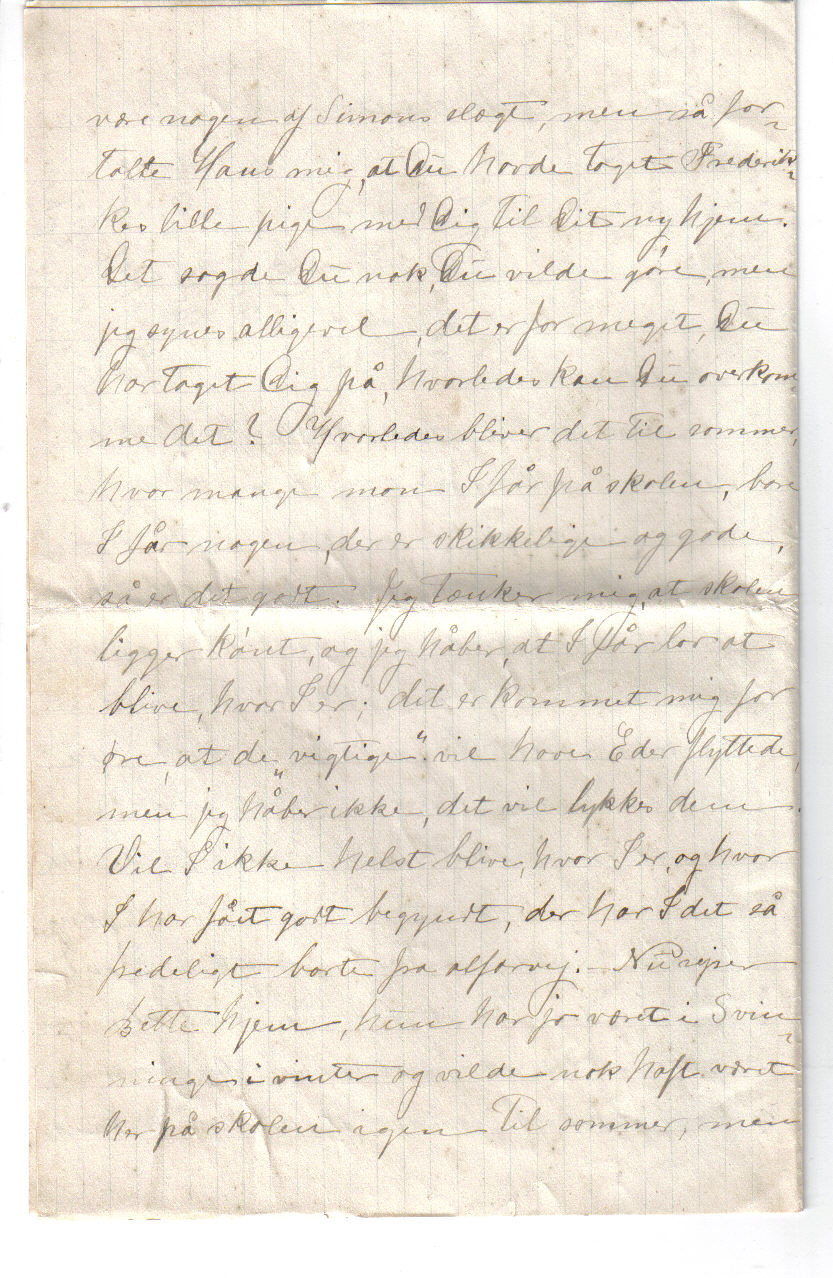 være nogen af Simons slægt, men så for-
talte Hans mig, at Du havde taget Frederik-
kes lille pige med Dig til Dit ny hjem.
Det sagde Du nok, Du vilde göre, men
jeg synes alligevel, det er for meget, Du
har taget Dig på, hvorledes kan Du overkom
me det? Hvorledes bliver det til sommer,
hvor mange mon I får på skolen, bare
I får nogen, der er skikkelige og gode,
så er det godt. Jeg tænker mig, at skolen
ligger könt, og jeg håber, at I får lov at
blive, hvor I er; det er kommet mig for
øre, at de „vigtige“ vil have Eder flyttede,
men jeg håber ikke, det vil lykkes dem.
Vil I ikke helst blive, hvor I er, og hvor
I har fået godt begyndt, der har I det så
fredeligt borte fra alfarvej. – Nu rejser
Jette hjem, hun har jo været i Svin-
ninge i vinter og vilde nok haft været
her på skolen igen til sommer, men